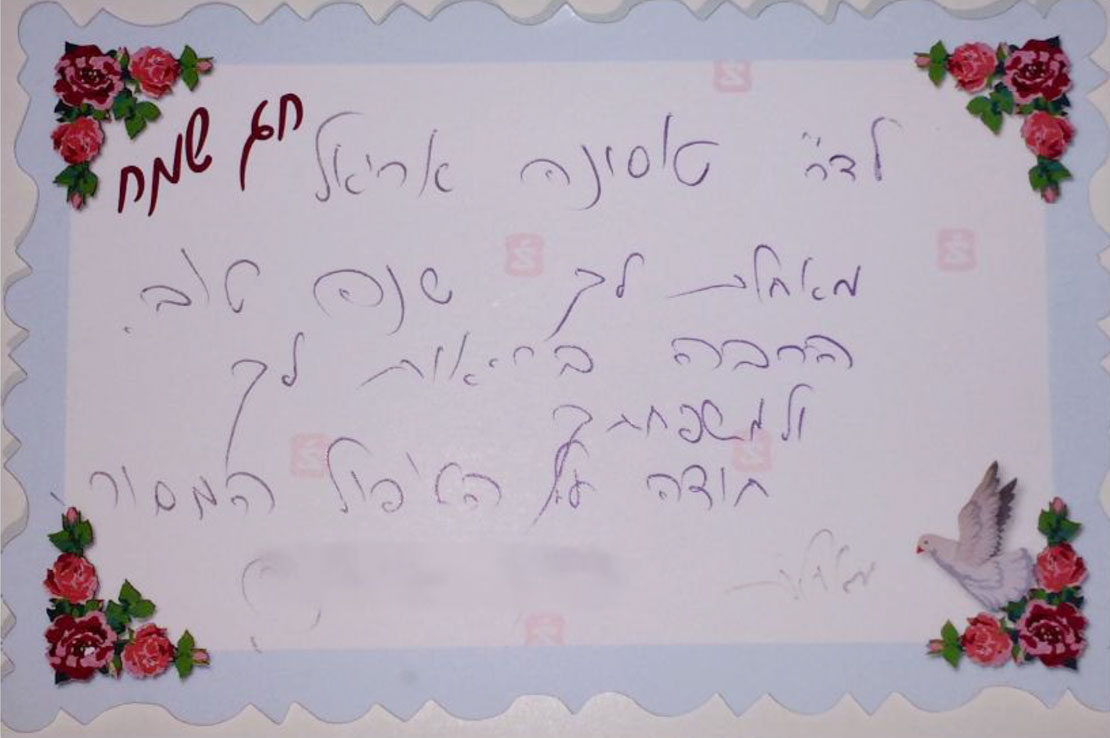 חג שמח
לדר' טאטינה אריאל
מאחלת לך שנה טוב.
הרבה בריאות לך
ולמשפחתך
תודה על הטיפול המסור